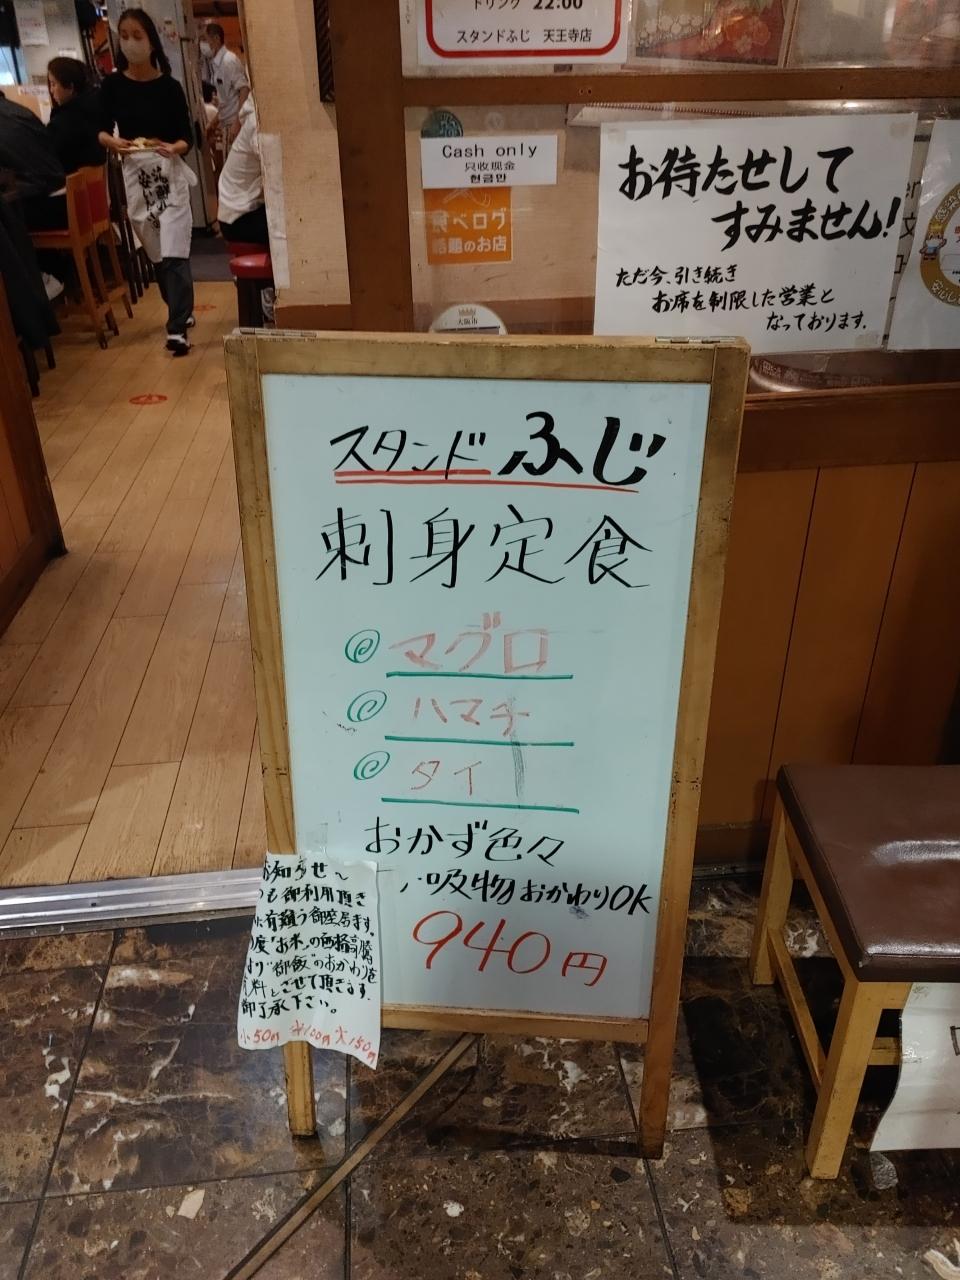 ドリンク 22:00
スタンドふじ 天王寺店
Cash only
只收现金
현금만
食べログ
話題のお店
大阪市
お待たせして
すみません!
ただ今、引き続き
お席を制限した営業と
なっております.
スタンド ふじ
刺身定食
マグロ
ハマチ
タイ
おかず色々
吸物おかわりOK
940円
お知らせ〜
も御利用頂き
有難う御座居ます。
度"お米"の価格高騰
より"御飯"のおかわりを
料とさせて頂きます.
御了承下さい。
小50円 中100円 大150円